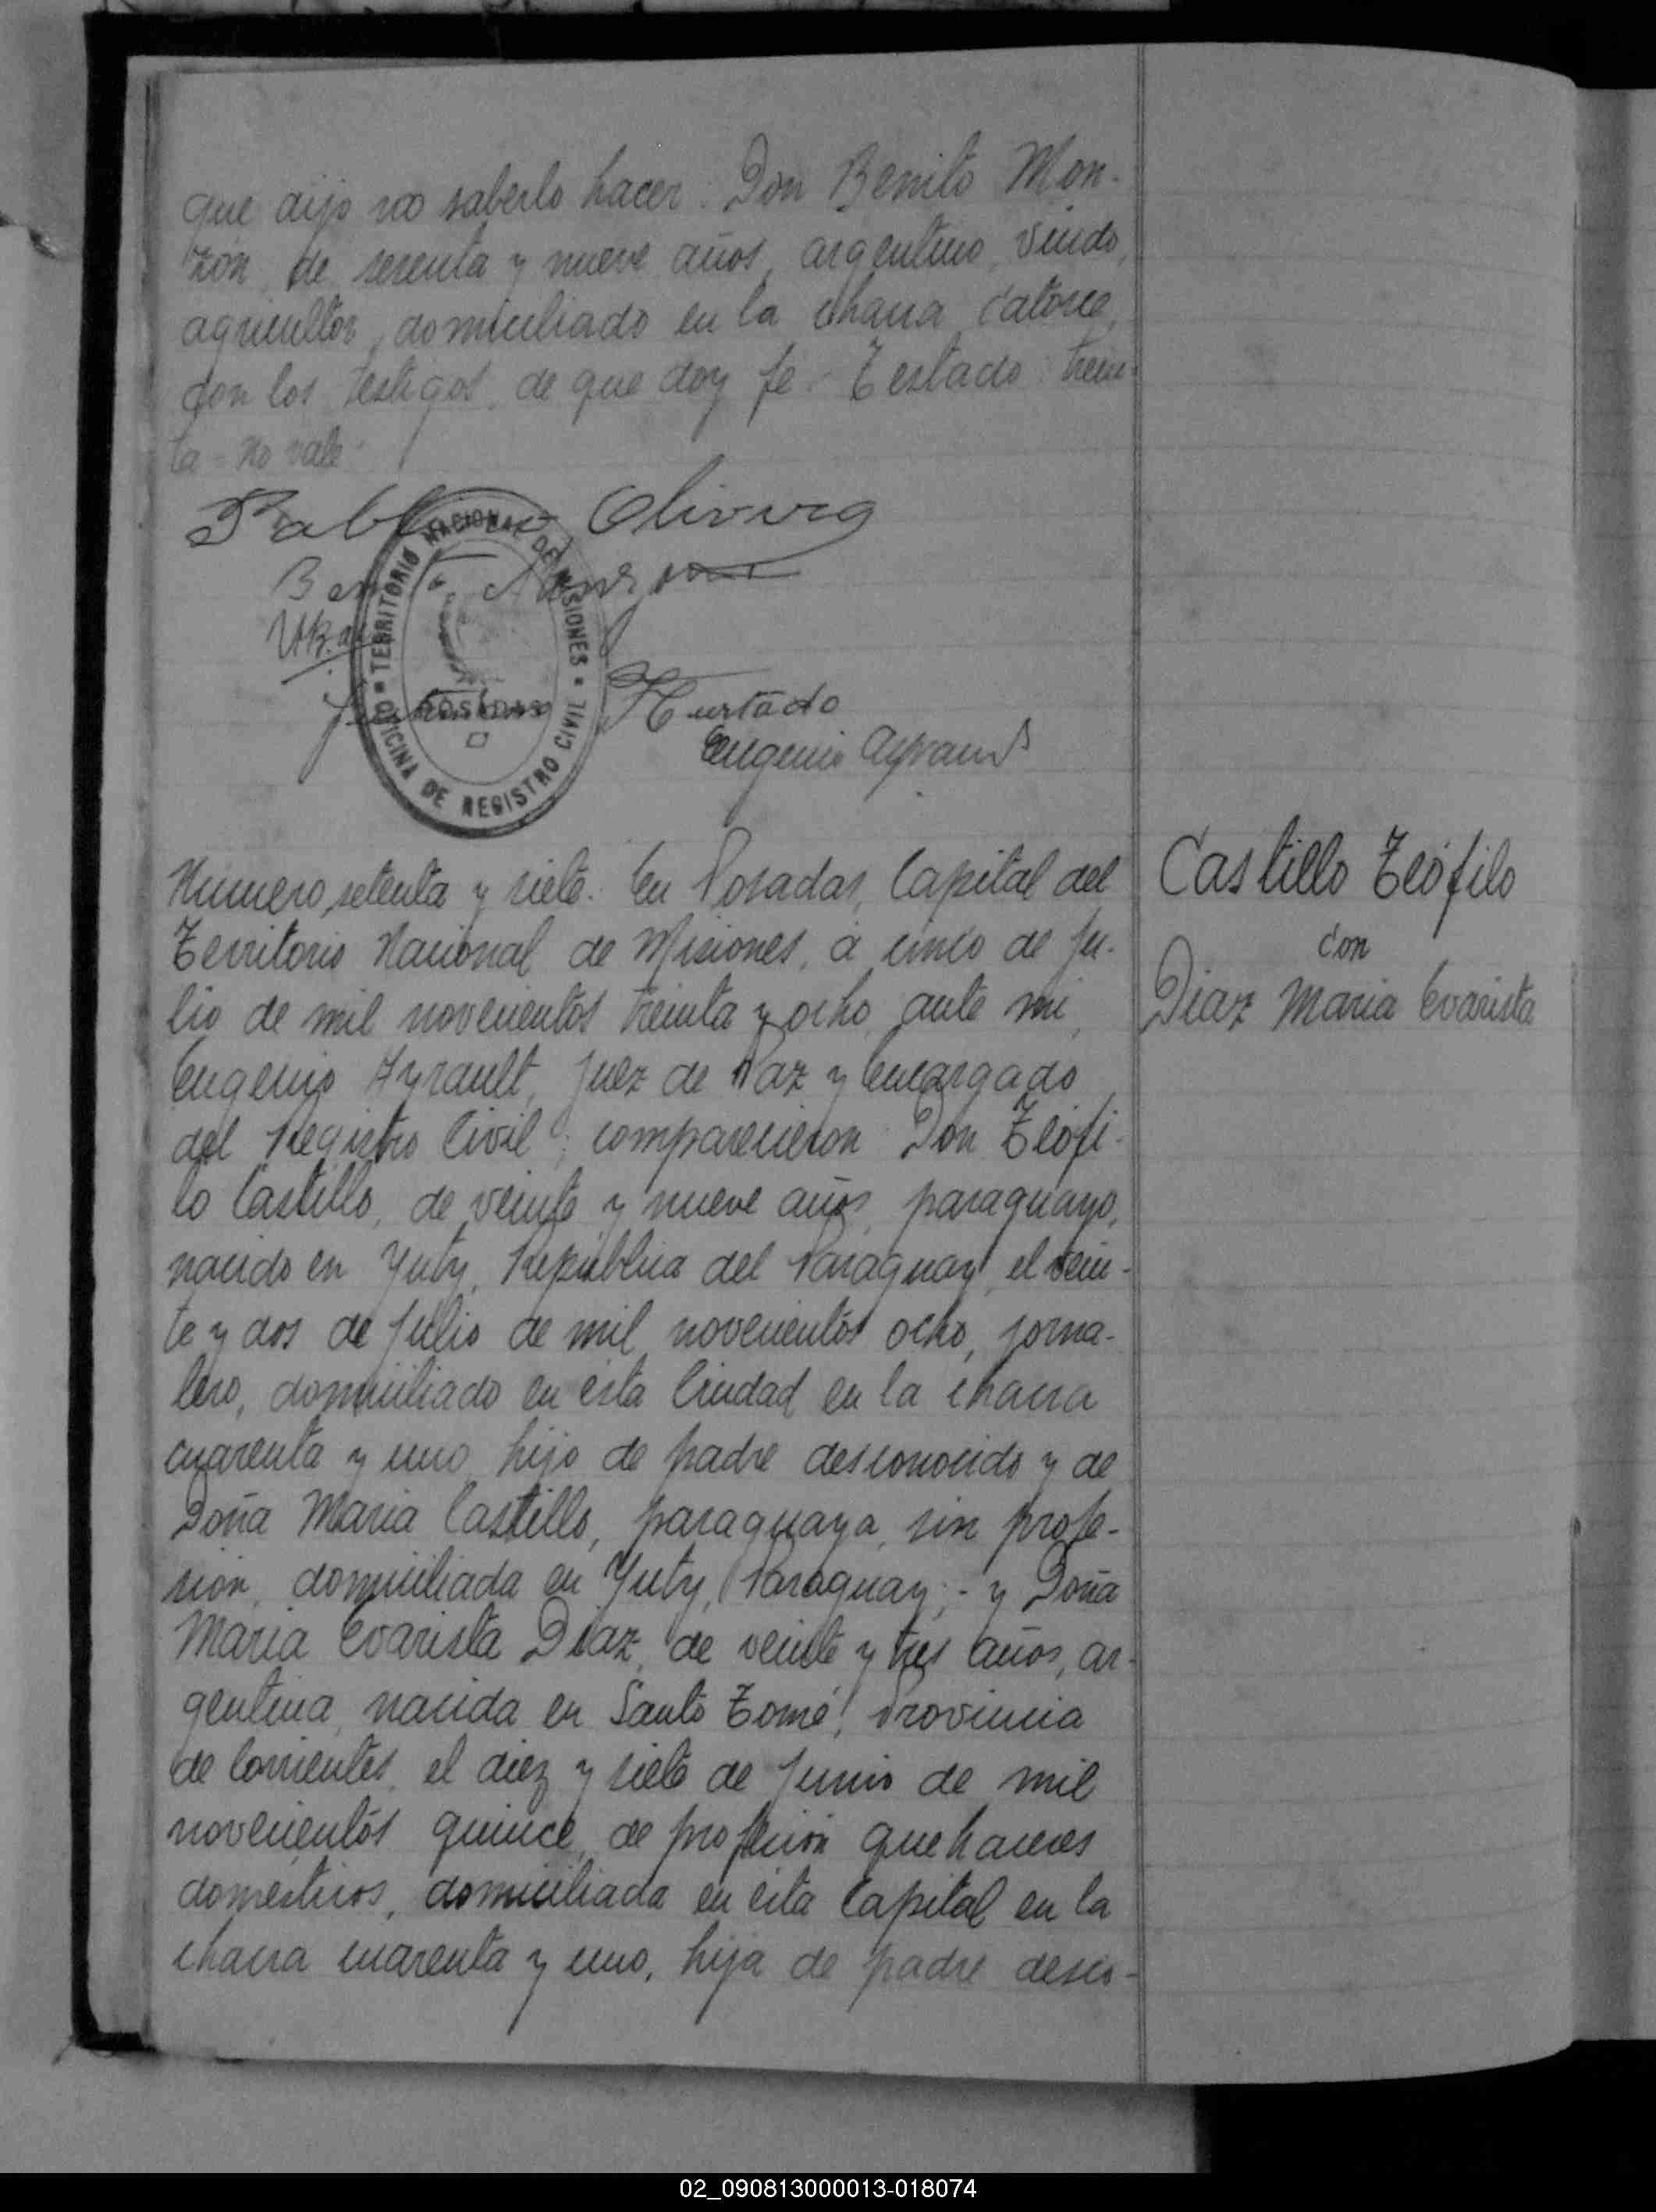 que dijo no saberlo hacer. Don Benito Mon-
zón, de sesenta y nueve años, argentino, viudo,
agricultor, domiciliado en la chacra catorce,
con los testigos, de que doy fe.- Testado: trein-
ta - no vale -
Olivera
Hurtado
Eugenio Ayrault
TERRITORIO NACIONAL DE MISIONES
POSADAS
OFICINA DE REGISTRO CIVIL
Numero setenta y siete. En Posadas, Capital del
Territorio Nacional de Misiones, a cinco de Ju-
lio de mil novecientos treinta y ocho, ante mi,
Eugenio Ayrault, Juez de Paz y Encargado
del Registro Civil, comparecieron Don Teófi-
lo Castillo, de veinte y nueve años, paraguayo,
nacido en Yuty, República del Paraguay, el vein-
te y dos de Julio de mil novecientos ocho, jorna-
lero, domiciliado en esta Ciudad en la chacra
cuarenta y uno, hijo de padre desconocido y de
Doña Maria Castillo, paraguaya, sin profe-
sion, domiciliada en Yuty, Paraguay; - y Doña
Maria Evarista Diaz, de veinte y tres años, ar-
gentina, nacida en Santo Tomé, Provincia
de Corrientes, el diez y siete de Junio de mil
novecientos quince, de profesión quehaceres
domesticos, domiciliada en esta Capital en la
chacra cuarenta y uno, hija de padre desco-
Castillo Teófilo
con
Diaz Maria Evarista
02_090813000013-018074